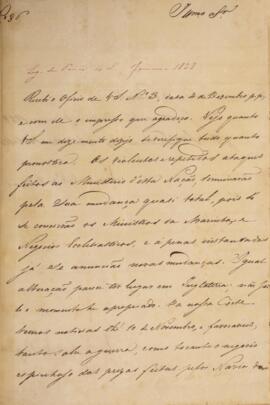 Illmo Snr
Janeiro 1828
Recebi o Officio de V. S. No 3, data 2 de Dezembro p.p,
e com elle o impresso que agradeço. Vejo quanto
V. S. me diz e muito dezejo se verifique tudo quanto
pronostica. Os violentos e repetidos ataques
feitos ao Ministerio d'esta Nação terminarão
pela sua mudança quasi total, pois só
se conservão os Ministros da Marinha, e
Negocios Ecclesiasticos, e apenas installados
já se annuncião novas mudanças. Igual
alteração parece ter lugar em Inglaterra
e o momento he apropriado. Da nossa Corte
temos noticias thé 10 de Novembro, e
tanto sobre a guerra, como tocante o negocio
espinhoso das prezas feitas pelos Navios